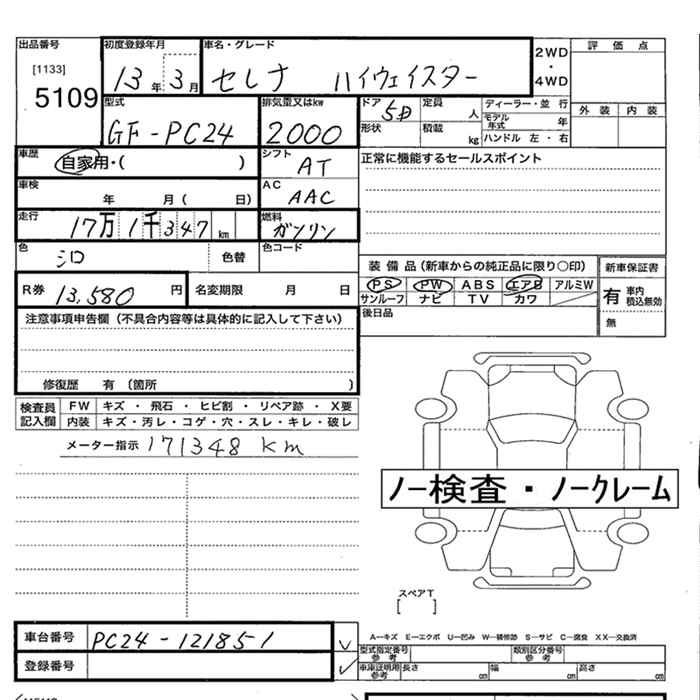 出品番号
[1133]
5109
初度登録年月
13年 3月
車名・グレード
セレナ ハイウェイスター
2WD
・
4WD
評価点
外装 内装
型式
GF-PC24
排気量又はkw
2000
ドア
5D
定員
人
形状
積載
kg
ディーラー・並行
モデル年式
年
ハンドル 左・右
車歴
自家用・( )
シフト
AT
正常に機能するセールスポイント
車検
年 月( 日)
AC
AAC
走行
17万1千347km
燃料
ガソリン
色
シロ
色替
色コード
R券
13,580円
名変期限 月 日
装備品(新車からの純正品に限り○印)
PS PW ABS エアB アルミW
サンルーフ ナビ TV カワ
新車保証書
有 車内積込無効
無
後日品
注意事項申告欄(不具合内容等は具体的に記入して下さい)
修復歴 有 (箇所 )
検査員記入欄
FW キズ・飛石・ヒビ割・リペア跡・X要
内装 キズ・汚レ・コゲ・穴・スレ・キレ・破レ
メーター指示 171348 km
ノー検査・ノークレーム
スペアT
[ ]
車台番号
PC24-121851
登録番号
A—キズ E—エクボ U—凹み W—補修跡 S—サビ C—腐食 XX—交換済
型式指定番号
参考
類別区分番号
参考
車庫証明用
参考
長さ cm 幅 cm 高さ cm